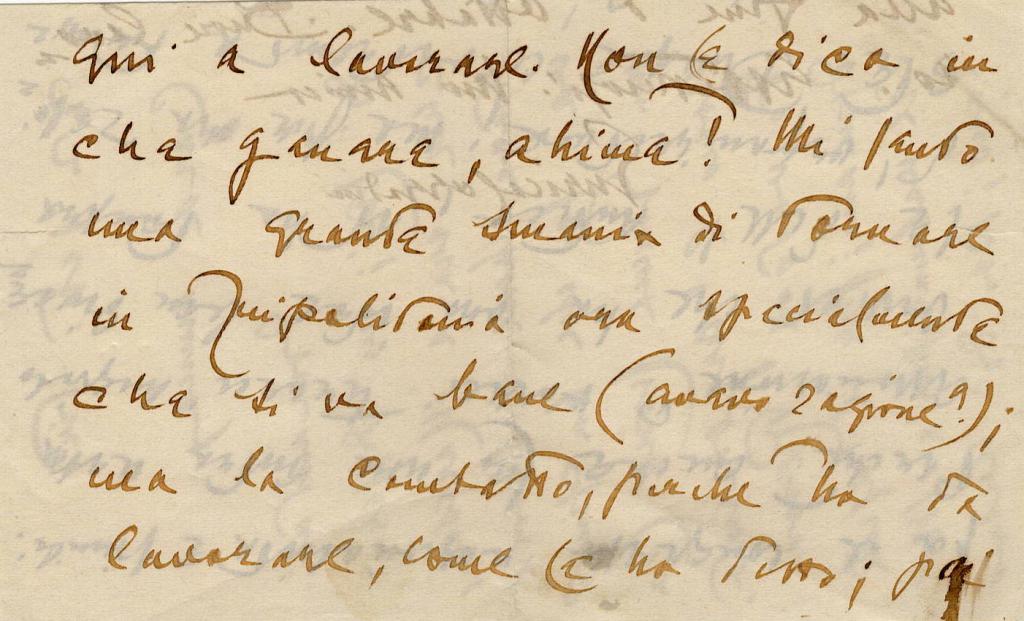 qui a lavorare. Non Le dico in
che genere, ahimè! Mi sento
una grande smania di tornare
in Tripolitania ora specialmente
che si va bene (avevo ragione?);
ma la combatto, perché ho da
lavorare, come Le ho detto; poi